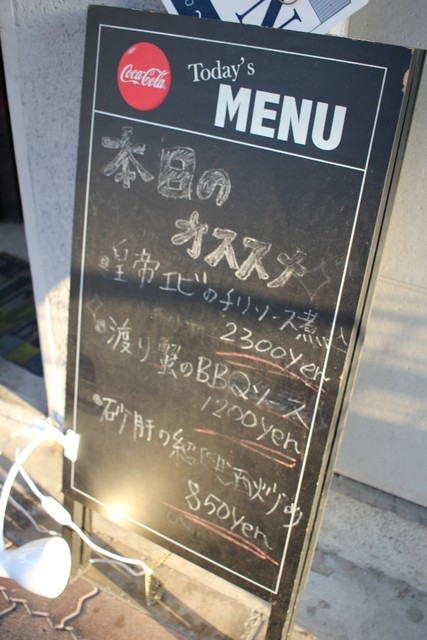 Coca-Cola
Today's
MENU
本日の
オススメ
皇帝エビのチリソース煮込
2300yen
渡り蟹のBBQソース
1200yen
砂肝の紹興酒炒め
850yen